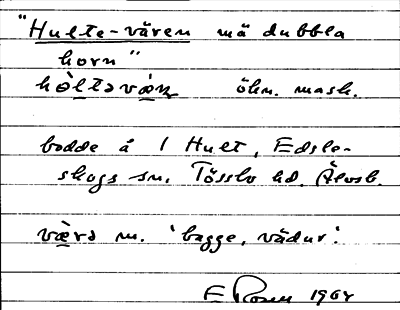 "Hulte-våren må dubbla
horn"
hòltəvæ̀ṇ öhn. mask.
bodde å 1 Hult, Edsle-
skogs sn. Tössbo hd. Älvsb.
væ̀rə m. 'bagge, vädur'.
E Rosen 1964